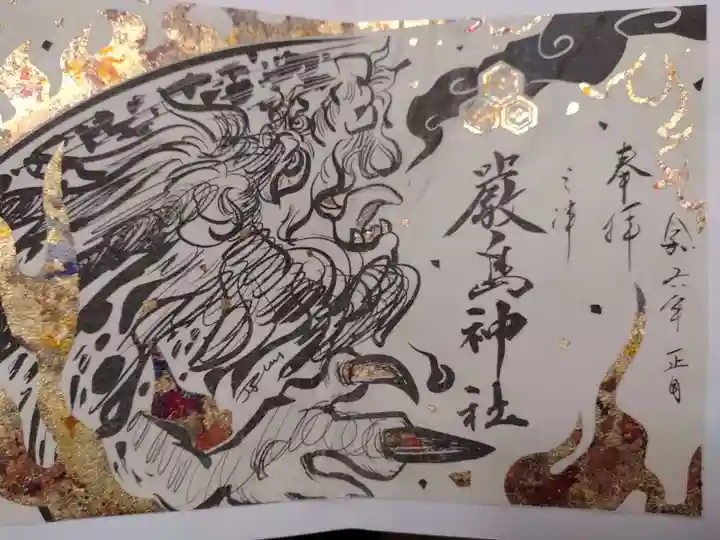 奉拝
三津
嚴島神社
令和六年 正月